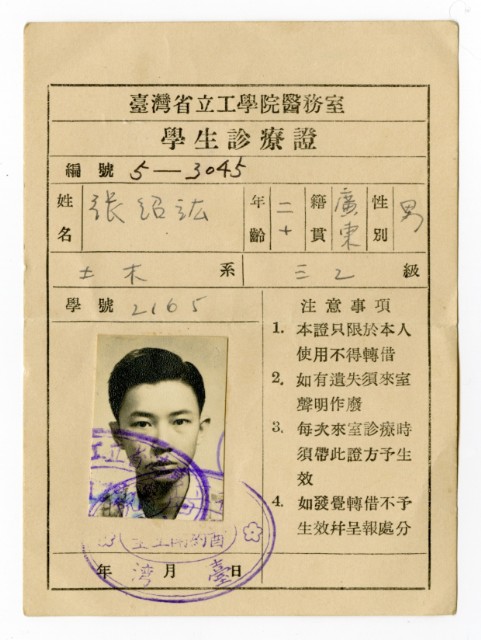 臺灣省立工學院醫務室
學生診療證
編號 5—3045
姓名 張紹詃 年齡 二十 籍貫 廣東 性別 男
土木系 三乙級
學號 2165
注意事項
1. 本證只限於本人
使用不得轉借
2. 如有遺失須來室
聲明作廢
3. 每次來室診療時
須帶此證方予生
效
4. 如發覺轉借不予
生效幷呈報處分
年 月 日
臺灣